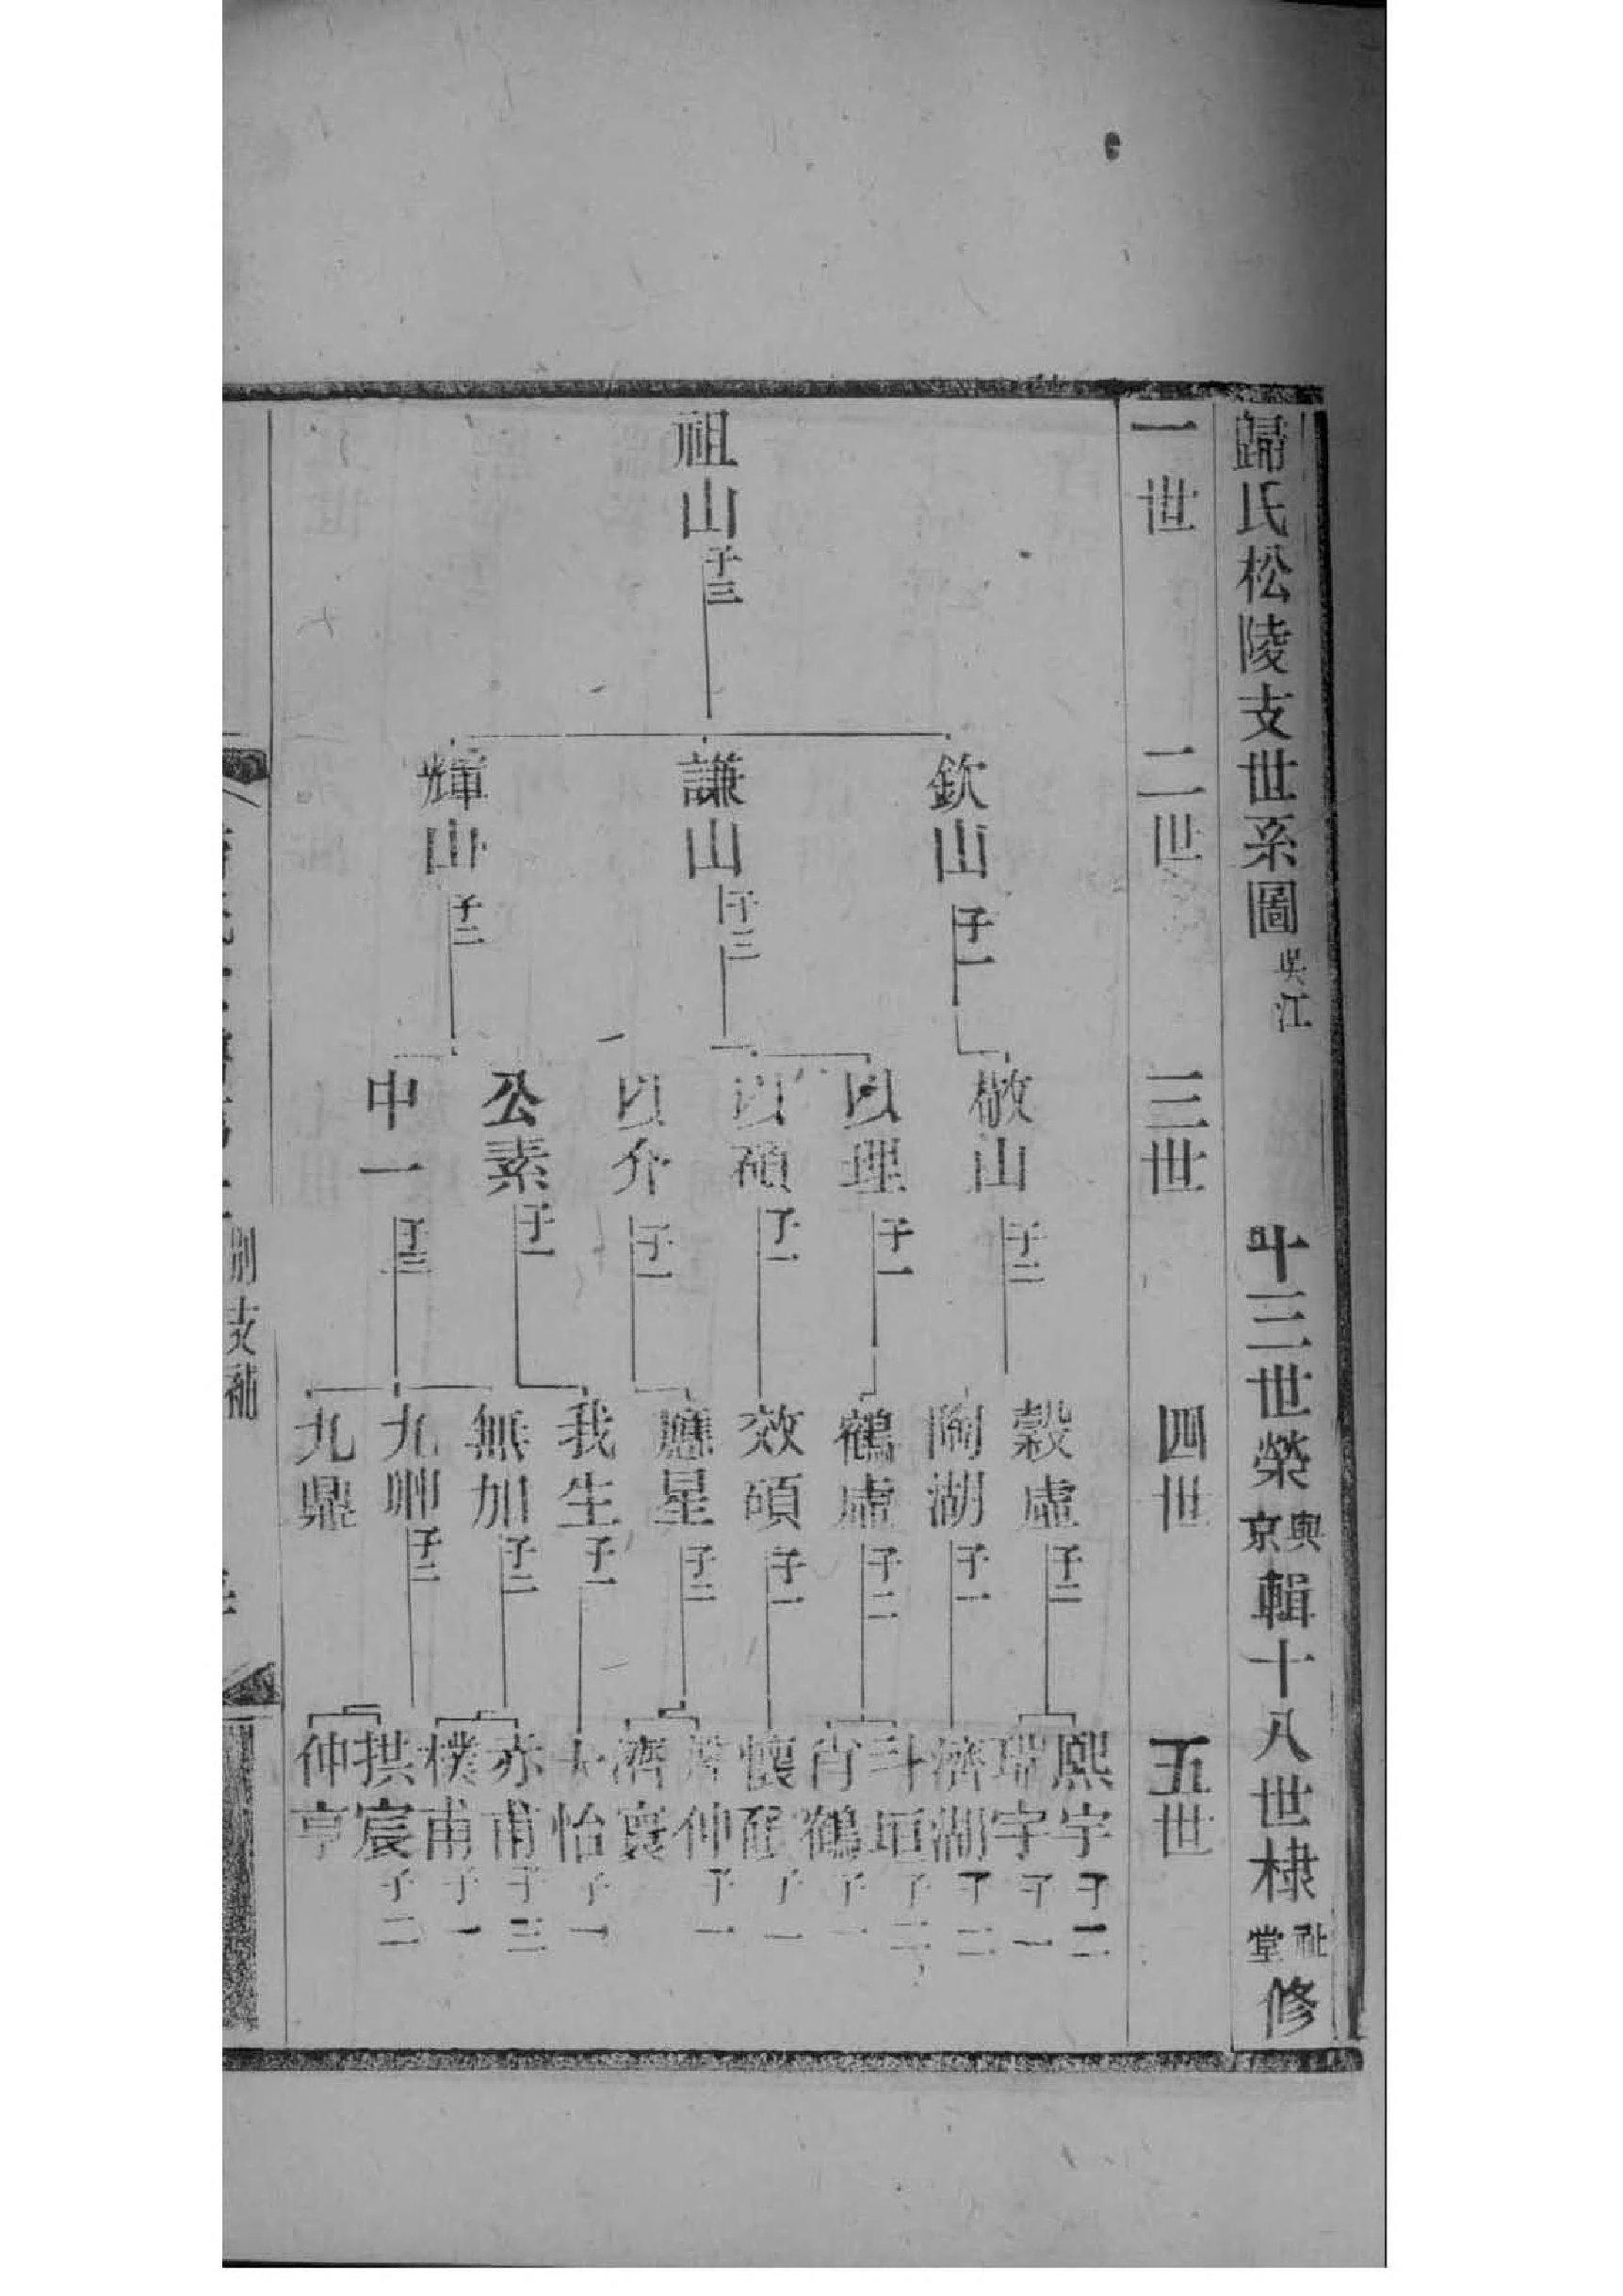 歸氏松陵支世系圖 吳江 十三世榮 輿京 輯十八世棣 祉堂 修
一世 二世 三世 四世 五世
祖山 子三
欽山 子一
謙山 子三
輝山 子二
敬山 子二
以理 子一
以碩 子一
以介 子一
公素 子一
中一 子三
穀虛 子二
陶湖 子一
鶴虛 子二
效碩 子一
應星 子二
我生 子一
無加 子二
九 子二
九鼎
熙宇 子二
瑞宇 子一
濟湖 子二
斗垣 子二
肖鶴 子一
懷 子一
仲 子一
濟寰
怡 子一
赤甫 子三
樸甫 子一
拱宸 子二
仲亨
別支補